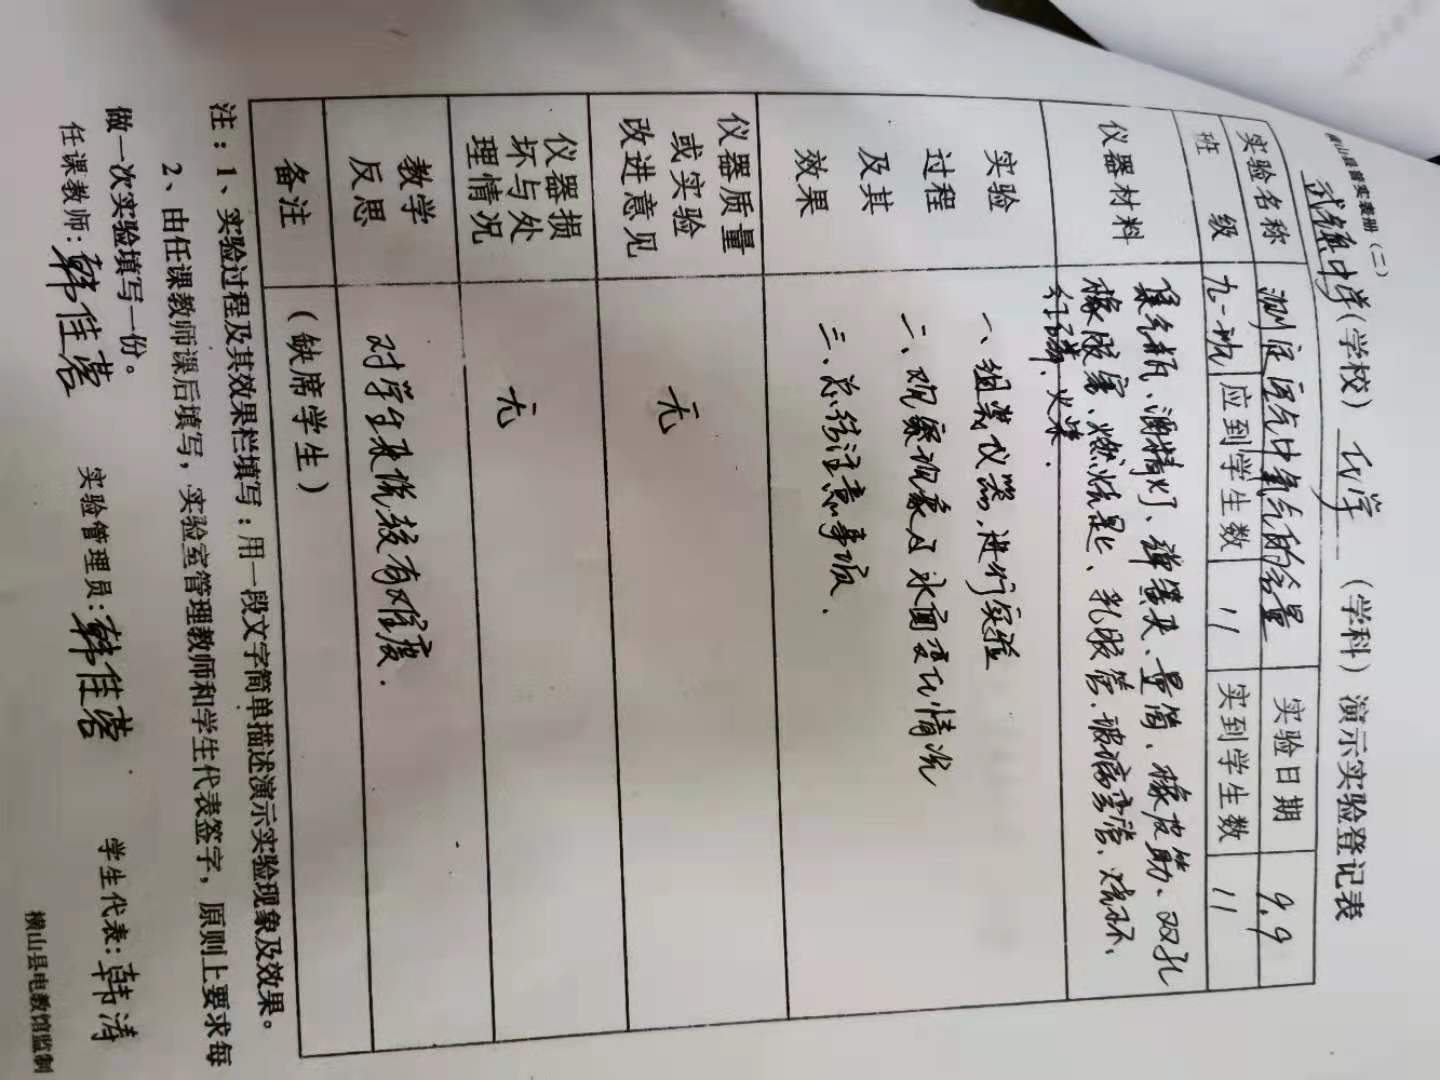 横山县普实表册（二）
武镇中学（学校） 化学 （学科）演示实验登记表
实验名称 测定空气中氧气的含量 实验日期 9.9
班 级 九一班 应到学生数 11 实到学生数 11
仪器材料 集气瓶、酒精灯、弹簧夹、量筒、橡皮筋、双孔
橡胶塞、燃烧匙、乳胶管、玻璃弯管、烧杯、
红磷、火柴.
实验
过程
及其
效果
一、组装仪器,进行实验
二、观察现象及水面变化情况
三、总结注意事项.
仪器质量
或实验
改进意见
无
仪器损
坏与处
理情况
无
教学
反思
对学生来说较有难度.
备注 （缺席学生）
注：1、实验过程及其效果栏填写：用一段文字简单描述演示实验现象及效果。
2、由任课教师课后填写，实验室管理教师和学生代表签字，原则上要求每
做一次实验填写一份。
任课教师:韩佳蓉 实验管理员:韩佳蓉 学生代表:韩涛
横山县电教馆监制